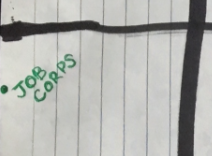 JOB
CORPS